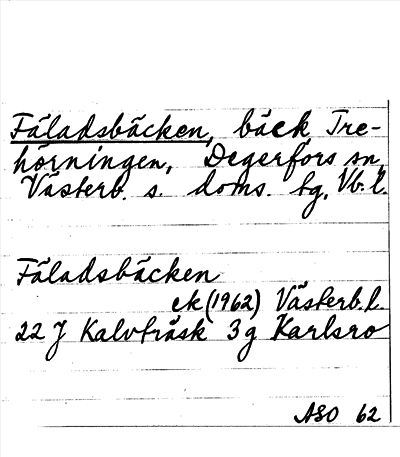 Fäladsbäcken, bäck, Tre-
hörningen, Degerfors sn,
Västerb. s. doms. tg, Vb. l.
Fäladsbäcken
ek (1962) Västerb. l.
22 J Kalvträsk 3 g Karlsro
ASO 62